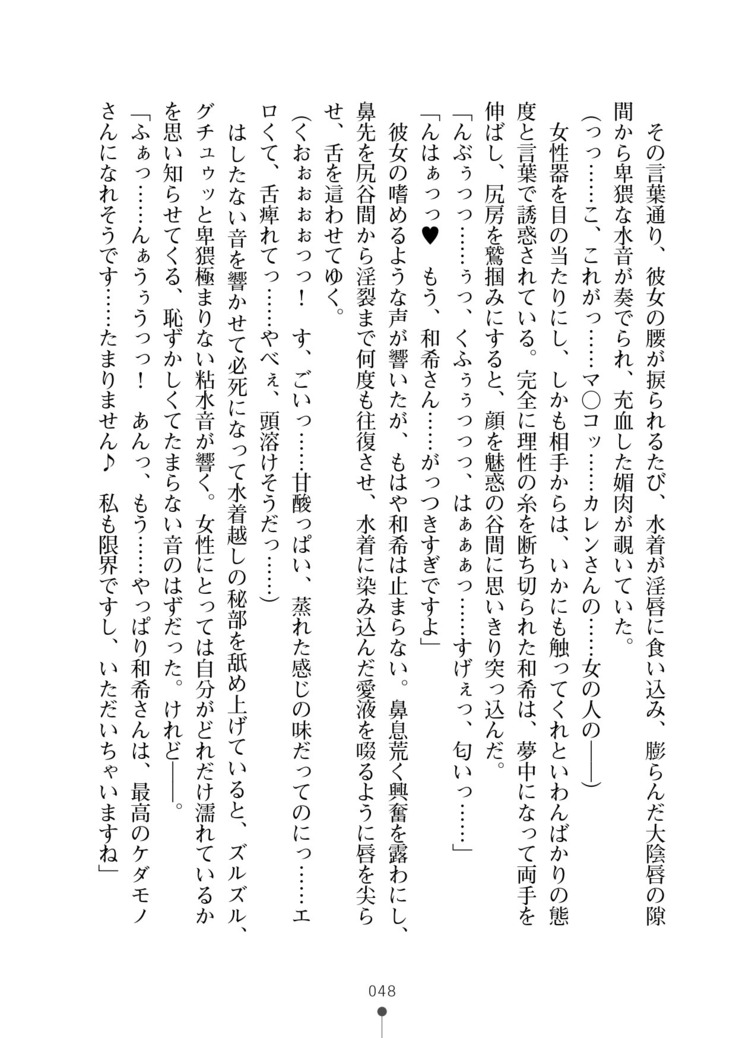 その言葉通り、彼女の腰が捩られるたび、水着が淫唇に食い込み、膨らんだ大陰唇の隙
間から卑猥な水音が奏でられ、充血した媚肉が覗いていた。
（っっ……こ、これがっ……マ〇コッ……カレンさんの……女の人の――）
女性器を目の当たりにし、しかも相手からは、いかにも触ってくれといわんばかりの態
度と言葉で誘惑されている。完全に理性の糸を断ち切られた和希は、夢中になって両手を
伸ばし、尻房を鷲掴みにすると、顔を魅惑の谷間に思いきり突っ込んだ。
「んぶぅっっ……ぅっ、くふぅぅっっっ、はぁぁぁっ……すげぇっ、匂いっ……」
「んはぁっっ♥　もう、和希さん……がっつきすぎですよ」
彼女の嗜めるような声が響いたが、もはや和希は止まらない。鼻息荒く興奮を露わにし、
鼻先を尻谷間から淫裂まで何度も往復させ、水着に染み込んだ愛液を啜るように唇を尖ら
せ、舌を這わせてゆく。
（くおぉぉぉぉっっ！　す、ごいっ……甘酸っぱい、蒸れた感じの味だってのにっ……エ
ロくて、舌痺れてっ……やべぇ、頭溶けそうだっ……）
はしたない音を響かせて必死になって水着越しの秘部を舐め上げていると、ズルズル、
グチュゥッと卑猥極まりない粘水音が響く。女性にとっては自分がどれだけ濡れているか
を思い知らせてくる、恥ずかしくてたまらない音のはずだった。けれど――。
「ふぁっ……んぁうぅうっっ！　あんっ、もう……やっぱり和希さんは、最高のケダモノ
さんになれそうです……たまりません♪　私も限界ですし、いただいちゃいますね」
048